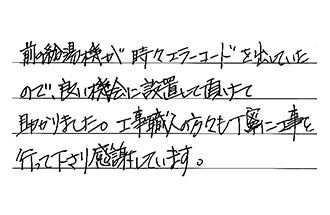 前の給湯機が時々エラーコードを出していた
ので、良い機会に設置して頂けて
助かりました。工事職人の方々も丁寧に工事を
行って下さり感謝しています。